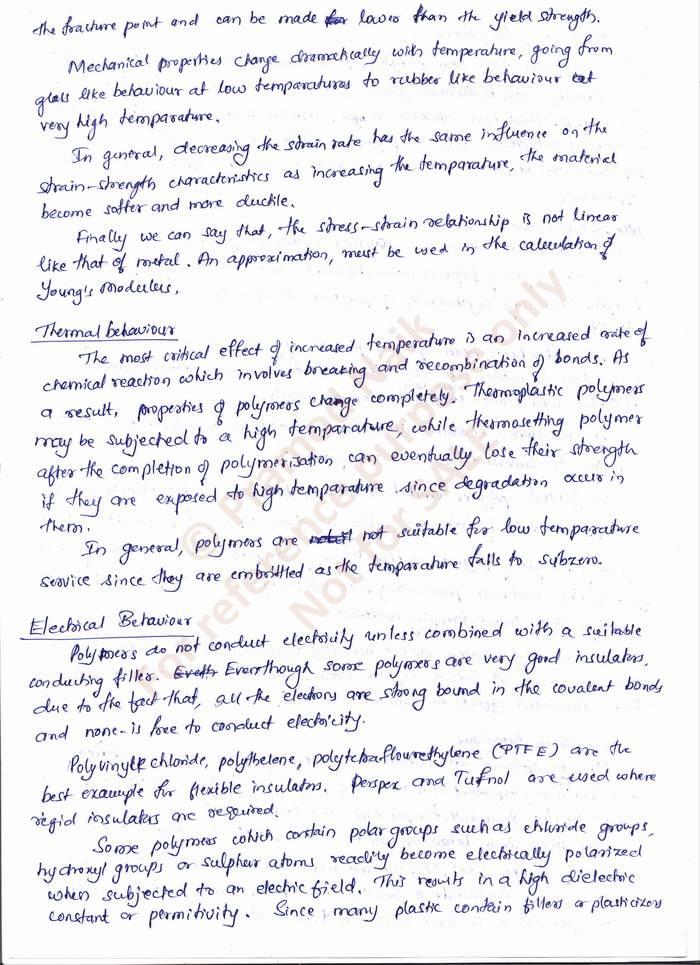 the fracture point and can be made for lower than the yield strength.
Mechanical properties change dramatically with temperature, going from
glass like behaviour at low temparatures to rubber like behaviour at
very high temparature.
In general, decreasing the strain rate has the same influence on the
strain-strength characteristics as increasing the temparature, the material
become softer and more ductile.
Finally we can say that, the stress-strain relationship is not linear
like that of metal. An approximation, must be used in the calculation of
Young's Modulus.
Thermal behaviour
The most critical effect of increased temperature is an increased rate of
chemical reaction which involves breaking and recombination of bonds. As
a result, properties of polymers change completely. Thermoplastic polymers
may be subjected to a high temparature, while thermosetting polymer
after the completion of polymerisation can eventually lose their strength
if they are exposed to high temparature since degradation occur in
them.
In general, polymers are not suitable for low temparature
service since they are embrittled as the temparature falls to subzero.
Electrical Behaviour
Polymers do not conduct electricity unless combined with a suitable
conducting filler. Eventhough some polymers are very good insulators,
due to the fact that, all the electrons are strong bound in the covalent bonds
and none is free to conduct electricity.
Polyvinyle chloride, polythelene, polytetraflourethylene (PTFE) are the
best example for flexible insulators. Perspex and Tufnol are used where
regid insulators are required.
Some polymers which contain polar groups such as chloride groups,
hydroxyl groups or sulpher atoms readily become electrically polarized
when subjected to an electric field. This results in a high dielectric
constant or permitivity. Since many plastic contain fillers or plasticizers
© Pramod Naik
For reference purpose only
Not for SALE